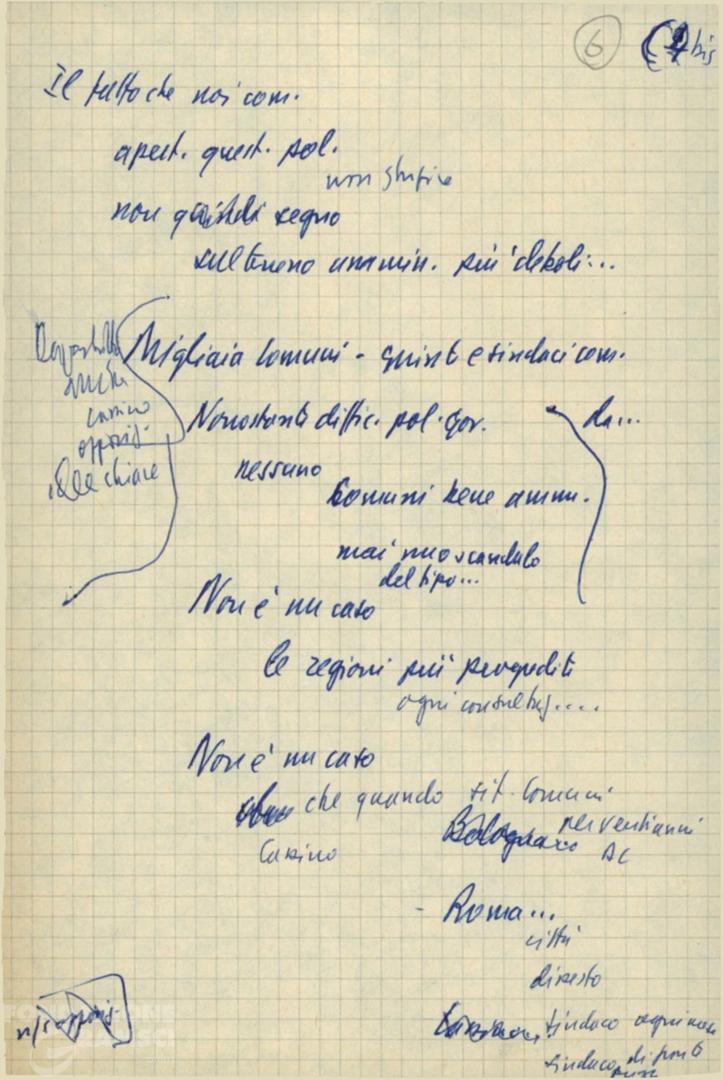 6
bis
Il fatto che noi com.
apert. quest. pol.
non stupire
non quindi segno
sul terreno ammin. più deboli...
Migliaia Comuni - giunte e sindaci com.
anche
opposiz.
idee chiare
Nonostante diffic. pol. gov.
da...
nessuno
Comuni bene ammi.
mai uno scandalo
del tipo...
Non è un caso
le regioni più progredite
ogni consultaz....
Non è un caso
che quando sit. Comuni
Bologna
per venti anni
DC
- Roma...
città
dissesto
sindaco ogni
sindaco di
n/s opposiz.